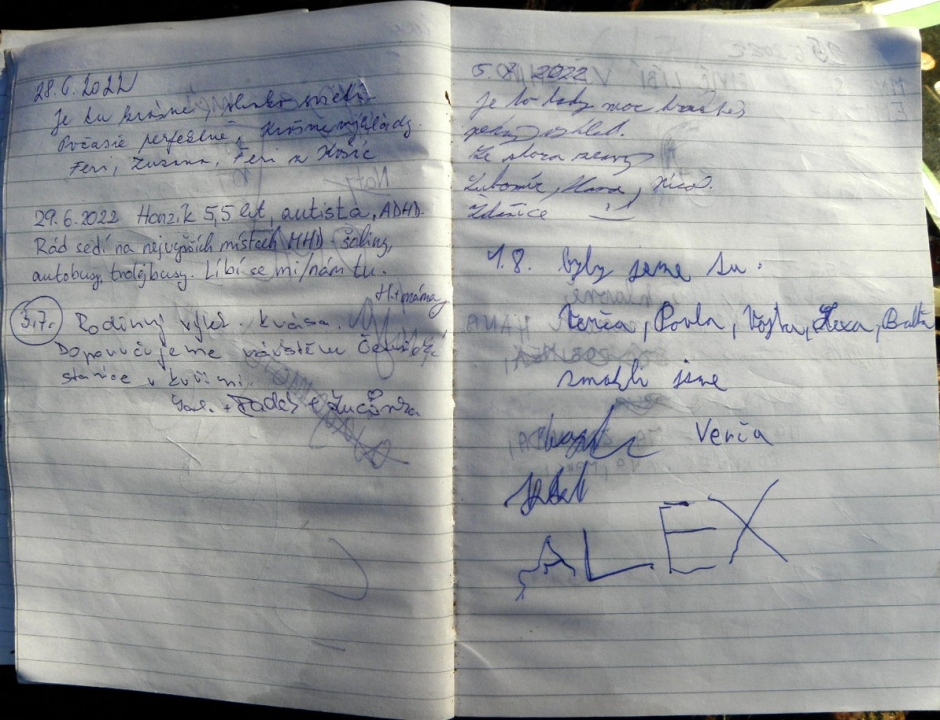 28.6.2022
Je tu krásně, slunko svítí.
Počasie perfektné, krásne výhľady.
Feri, Zuzana, Feri z Košíc
29.6.2022 Honzík 5,5 let, autista, ADHD.
Rád sedí na nejvyšších místech MHD šaliny,
autobusy, trolejbusy. Líbí se mi/nám tu.
H. + máma
3.7. Rodinný výlet. Krása.
Doporučujeme návštěvu
stanice v Kuřimi.
+ Tadeáš + Lucinka
5. 7. 2022
Je to tady moc krásné,
pekný rozhled.
Ke slova nemy
Lubomír, Hana,
Ždánice
1.8. byly jsme tu.
Verča, Pavla, Vojta, Alexa,
zmokli jsme
Verča
ALEX